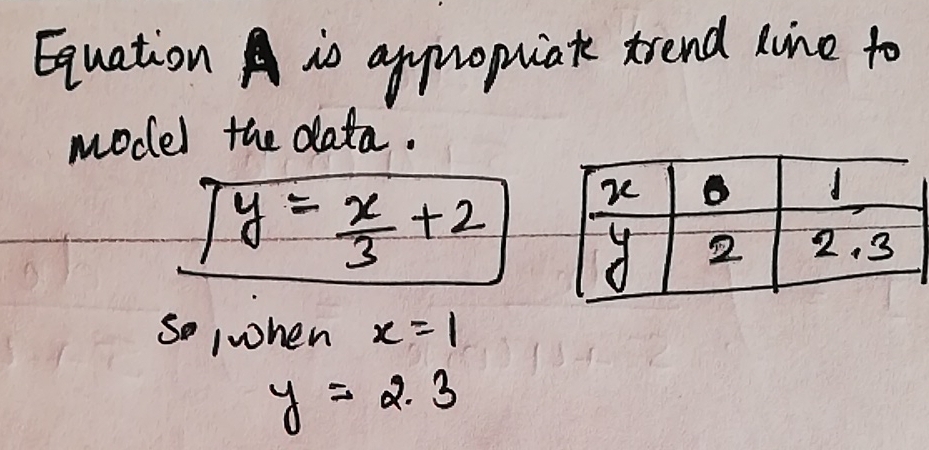 Equation A is appropriate trend line to
model the data.
y = x/3 + 2
x 0 1
y 2 2.3
So, when x = 1
y = 2.3